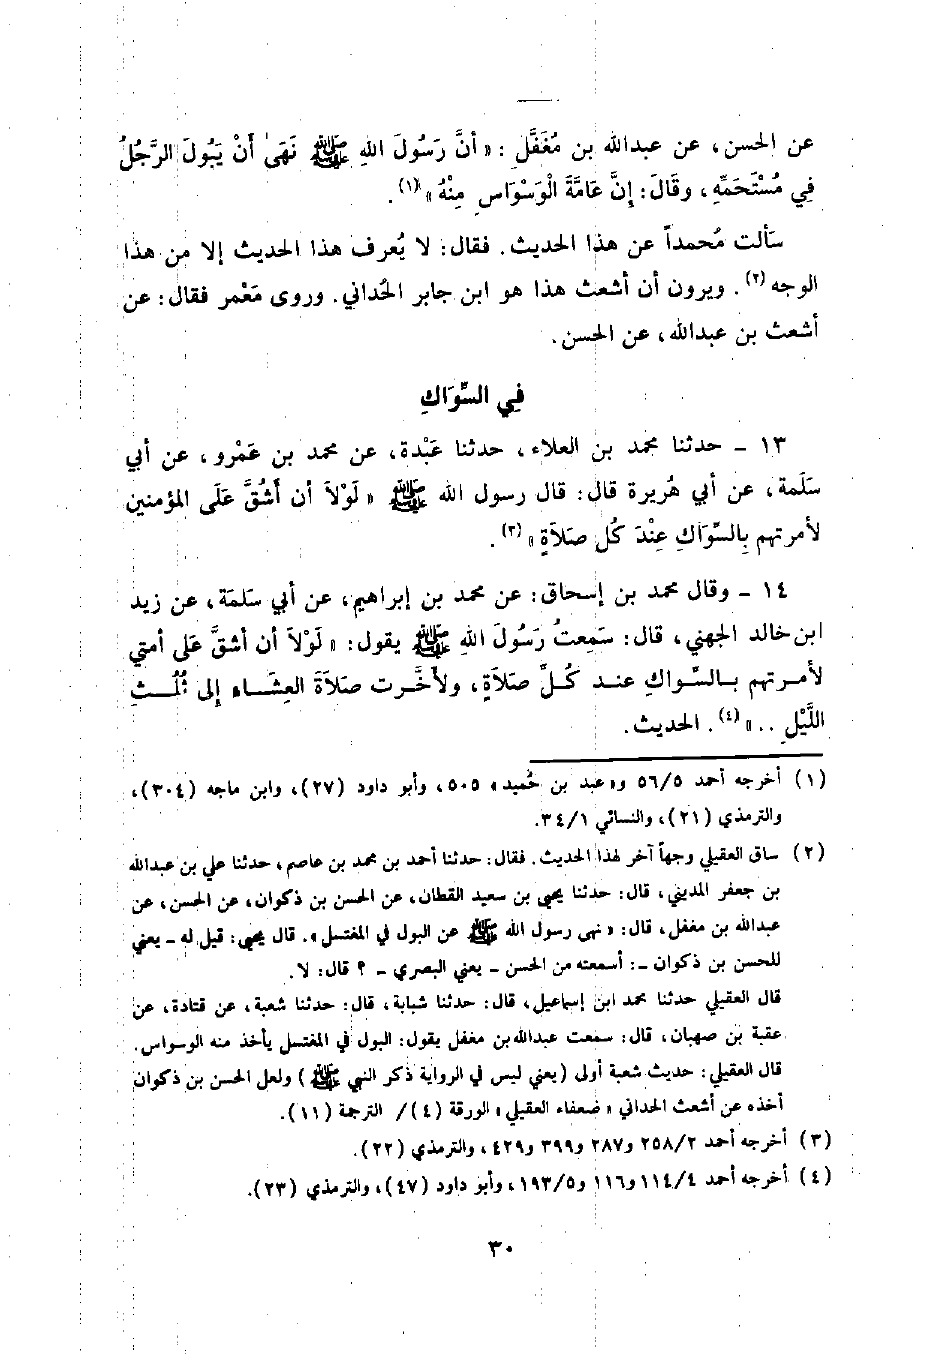 عن الحسن، عن عبدالله بن مُغَفَّلٍ: «أنَّ رَسُولَ اللهِ ﷺ نَهَىٰ أَنْ يَبُولَ الرَّجُلُ
فِي مُسْتَحَمِّهِ، وقَالَ: إِنَّ عَامَّةَ الْوَسْوَاسِ مِنْهُ»(١).
سَألت مُحمداً عن هذا الحديث. فقال: لا يُعرف هذا الحديث إلا من هذا
الوجه(٢). ويرون أن أشعث هذا هو ابن جابر الحُداني. وروى مَعْمر فقال: عن
أشعث بن عبدالله، عن الحسن.
فِي السِّوَاكِ
١٣ - حدثنا محمد بن العلاء، حدثنا عَبْدة، عن محمد بن عَمْرو، عن أبي
سَلَمة، عن أبي هُريرة قال: قال رسول الله ﷺ «لَوْلاَ أن أَشُقَّ عَلَى المؤمنين
لأمرتهم بِالسِّوَاكِ عِنْدَ كُل صَلاَةٍ»(٣).
١٤ - وقال محمد بن إسحاق: عن محمد بن إبراهيم، عن أبي سَلمَة، عن زيد
ابن خالد الجهني، قال: سَمِعتُ رَسُولَ اللهِ ﷺ يقول: «لَوْلاَ أن أشقَّ عَلى أمتي
لأمرتهم بالسِّواكِ عند كُلِّ صلاَةٍ، ولأخَّرت صلاَةَ العِشَاء إلى ثُلُثِ
اللَّيْلِ ..»(٤). الحديث.
(١) أخرجه أحمد ٥٦/٥ و«عبد بن حُميد» ٥٠٥، وأبو داود (٢٧)، وابن ماجه (٣٠٤)،
والترمذي (٢١)، والنسائي ٣٤/١.
(٢) ساق العقيلي وجهاً آخر لهذا الحديث. فقال: حدثنا أحمد بن محمد بن عاصم، حدثنا علي بن عبدالله
بن جعفر المديني، قال: حدثنا يحيى بن سعيد القطان، عن الحسن بن ذكوان، عن الحسن، عن
عبدالله بن مغفل، قال: «نهى رسول الله ﷺ عن البول في المغتسل». قال يحيى: قيل له - يعني
للحسن بن ذكوان -: أسمعته من الحسن - يعني البصري - ؟ قال: لا.
قال العقيلي حدثنا محمد ابن إسماعيل، قال: حدثنا شبابة، قال: حدثنا شعبة، عن قتادة، عن
عقبة بن صهبان، قال: سمعت عبدالله بن مغفل يقول: البول في المغتسل يأخذ منه الوسواس.
قال العقيلي: حديث شعبة أولى (يعني ليس في الرواية ذكر النبي ﷺ) ولعل الحسن بن ذكوان
أخذه عن أشعث الحداني «ضعفاء العقيلي» الورقة (٤)/ الترجمة (١١).
(٣) أخرجه أحمد ٢٥٨/٢ و٢٨٧ و٣٩٩ و٤٢٩، والترمذي (٢٢).
(٤) أخرجه أحمد ١١٤/٤ و١١٦ و١٩٣/٥، وأبو داود (٤٧)، والترمذي (٢٣).
٣٠